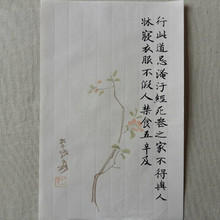 行此道忌淹汙經死喪之家不得與人
牀寢衣服不假人禁食五辛及